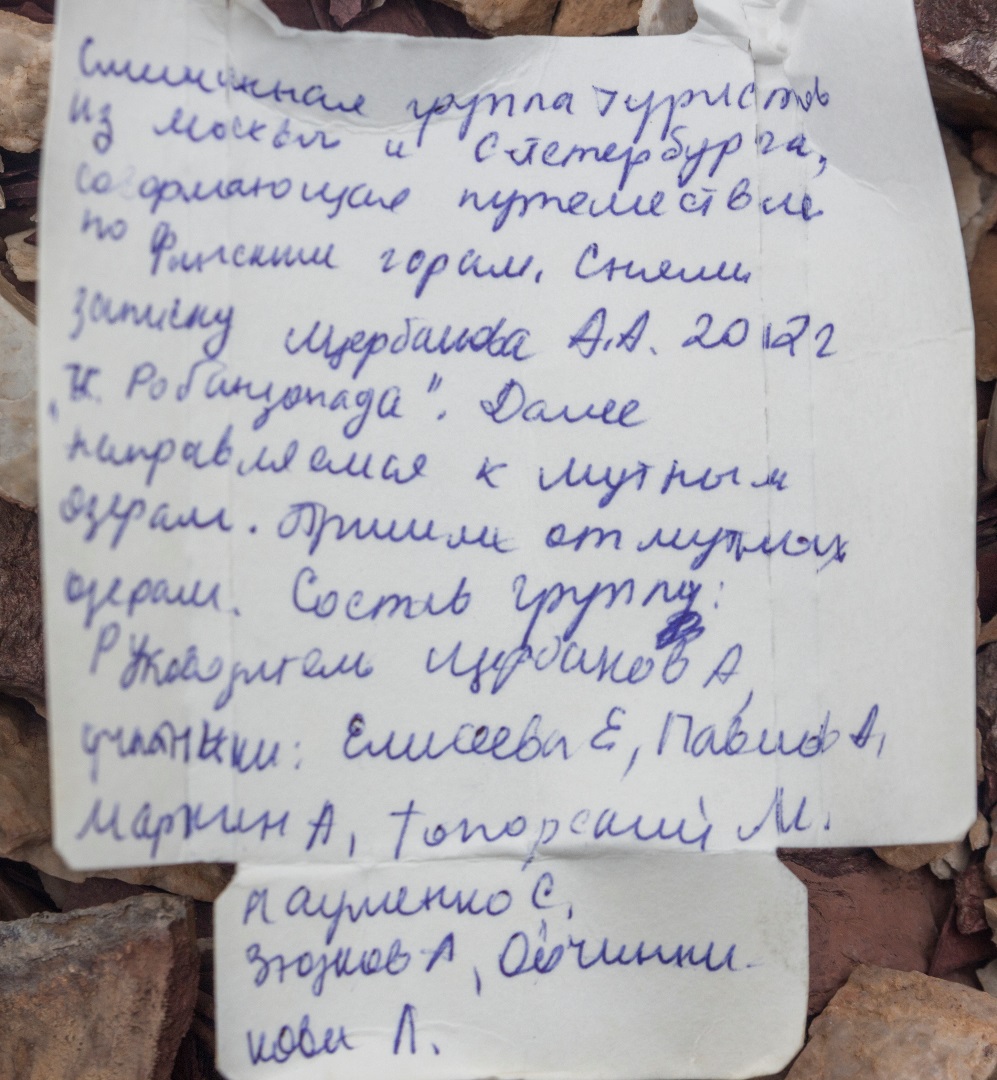 Смешанная группа туристов
из Москвы и С.Петербурга,
совершающая путешествие
по Финским горам. Сняли
записку Щербакова А.А. 2012г
"К. Робинзонада". Далее
направляемся к мутным
озерам. Пришли от мутных
озерам. Состав группы:
Руководитель Щербаков А,
участники: Елисеева Е, Павлов А,
Маркин А, Топорский М.
Науменко С.
Зюзков А, Овчинни-
кова Л.